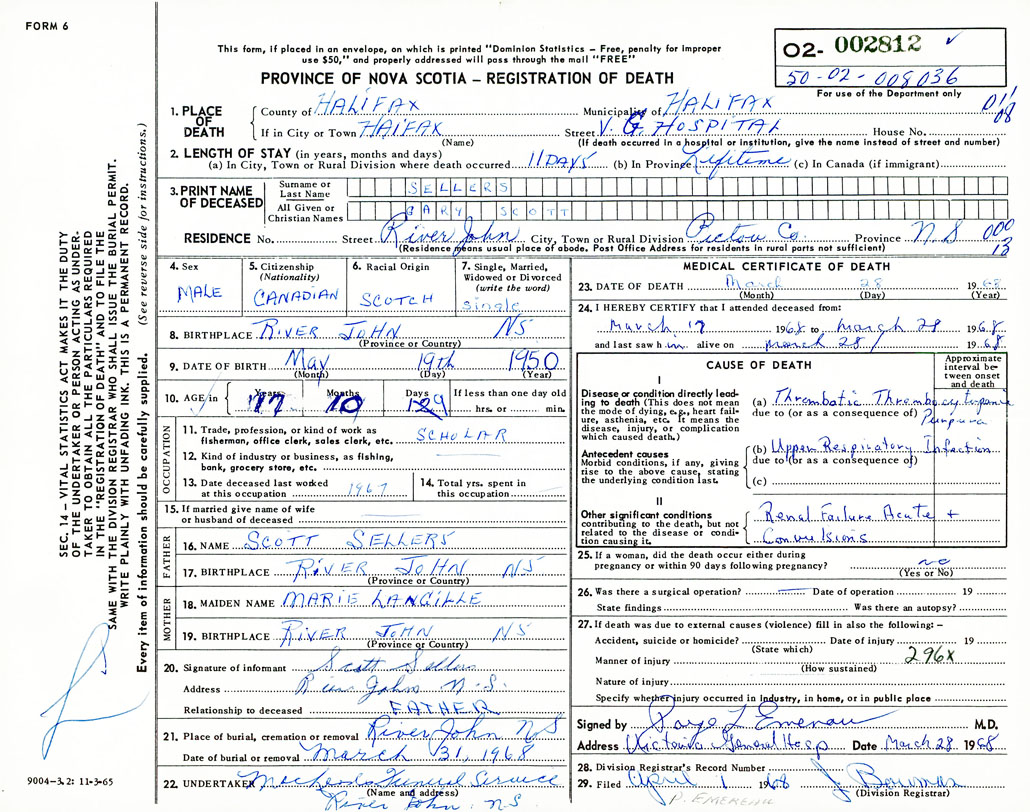 FORM 6
This form, if placed in an envelope, on which is printed "Dominion Statistics – Free, penalty for improper
use $50," and properly addressed will pass through the mail "FREE"
PROVINCE OF NOVA SCOTIA – REGISTRATION OF DEATH
02- 002812
50-02-008036
For use of the Department only
1. PLACE OF DEATH County of HALIFAX Municipality of HALIFAX
If in City or Town HAIFAX Street V. G HOSPITAL House No.
(Name) (If death occurred in a hospital or institution, give the name instead of street and number)
2. LENGTH OF STAY (in years, months and days)
(a) In City, Town or Rural Division where death occurred 11 DAYS (b) In Province Lifetime (c) In Canada (if immigrant)
3. PRINT NAME OF DECEASED
Surname or Last Name SELLERS
All Given or Christian Names GARY SCOTT
RESIDENCE No. Street River John City, Town or Rural Division Pictou Co. Province N.S 000
(Residence means usual place of abode. Post Office Address for residents in rural parts not sufficient) 13
4. Sex MALE
5. Citizenship (Nationality) CANADIAN
6. Racial Origin SCOTCH
7. Single, Married, Widowed or Divorced (write the word) single
8. BIRTHPLACE RIVER JOHN NS
(Province or Country)
9. DATE OF BIRTH May 19th 1950
(Month) (Day) (Year)
10. AGE in Years 17 Months 10 Days 9 If less than one day old
hrs. or min.
OCCUPATION
11. Trade, profession, or kind of work as
fisherman, office clerk, sales clerk, etc. SCHOLAR
12. Kind of industry or business, as fishing,
bank, grocery store, etc.
13. Date deceased last worked
at this occupation 1967
14. Total yrs. spent in
this occupation
15. If married give name of wife
or husband of deceased
FATHER
16. NAME SCOTT SELLERS
17. BIRTHPLACE RIVER JOHN NS
(Province or Country)
MOTHER
18. MAIDEN NAME MARIE LANGILLE
19. BIRTHPLACE RIVER JOHN NS
(Province or Country)
20. Signature of informant Scott Sellers
Address River John N.S.
Relationship to deceased FATHER
21. Place of burial, cremation or removal River John NS
Date of burial or removal March 31, 1968
22. UNDERTAKER Funeral Service
(Name and address)
River John, NS
MEDICAL CERTIFICATE OF DEATH
23. DATE OF DEATH March 28 1968
(Month) (Day) (Year)
24. I HEREBY CERTIFY that I attended deceased from:
March 17 1968 to March 28 1968
and last saw him alive on March 28/ 1968
CAUSE OF DEATH
Approximate interval between onset and death
I
Disease or condition directly leading
to death (This does not mean
the mode of dying, e.g., heart failure,
asthenia, etc. It means the
disease, injury, or complication
which caused death.)
(a) Thrombotic Thrombocytopenic
due to (or as a consequence of) Purpura
Antecedent causes
Morbid conditions, if any, giving
rise to the above cause, stating
the underlying condition last.
(b) Upper Respiratory Infection
due to (or as a consequence of)
(c)
II
Other significant conditions
contributing to the death, but not
related to the disease or condition
causing it.
Renal Failure Acute +
Convulsions
25. If a woman, did the death occur either during
pregnancy or within 90 days following pregnancy? no
(Yes or No)
26. Was there a surgical operation? Date of operation 19
State findings Was there an autopsy?
27. If death was due to external causes (violence) fill in also the following: –
Accident, suicide or homicide? Date of injury 19
(State which)
Manner of injury 296X
(How sustained)
Nature of injury
Specify whether injury occurred in Industry, in home, or in public place
Signed by Paige L Emenau M.D.
Address Victoria General Hosp Date March 28 1968
28. Division Registrar's Record Number
29. Filed April 1 1968 J Bowman
(Division Registrar)
P. EMENEAU
SEC. 14 – VITAL STATISTICS ACT MAKES IT THE DUTY
OF THE UNDERTAKER OR PERSON ACTING AS UNDERTAKER
TO OBTAIN ALL THE PARTICULARS REQUIRED
IN THE "REGISTRATION OF DEATH" AND TO FILE THE
SAME WITH THE DIVISION REGISTRAR WHO SHALL ISSUE THE BURIAL PERMIT.
WRITE PLAINLY WITH UNFADING INK. THIS IS A PERMANENT RECORD.
Every item of information should be carefully supplied. (See reverse side for instructions.)
9004-3.2: 11-3-65